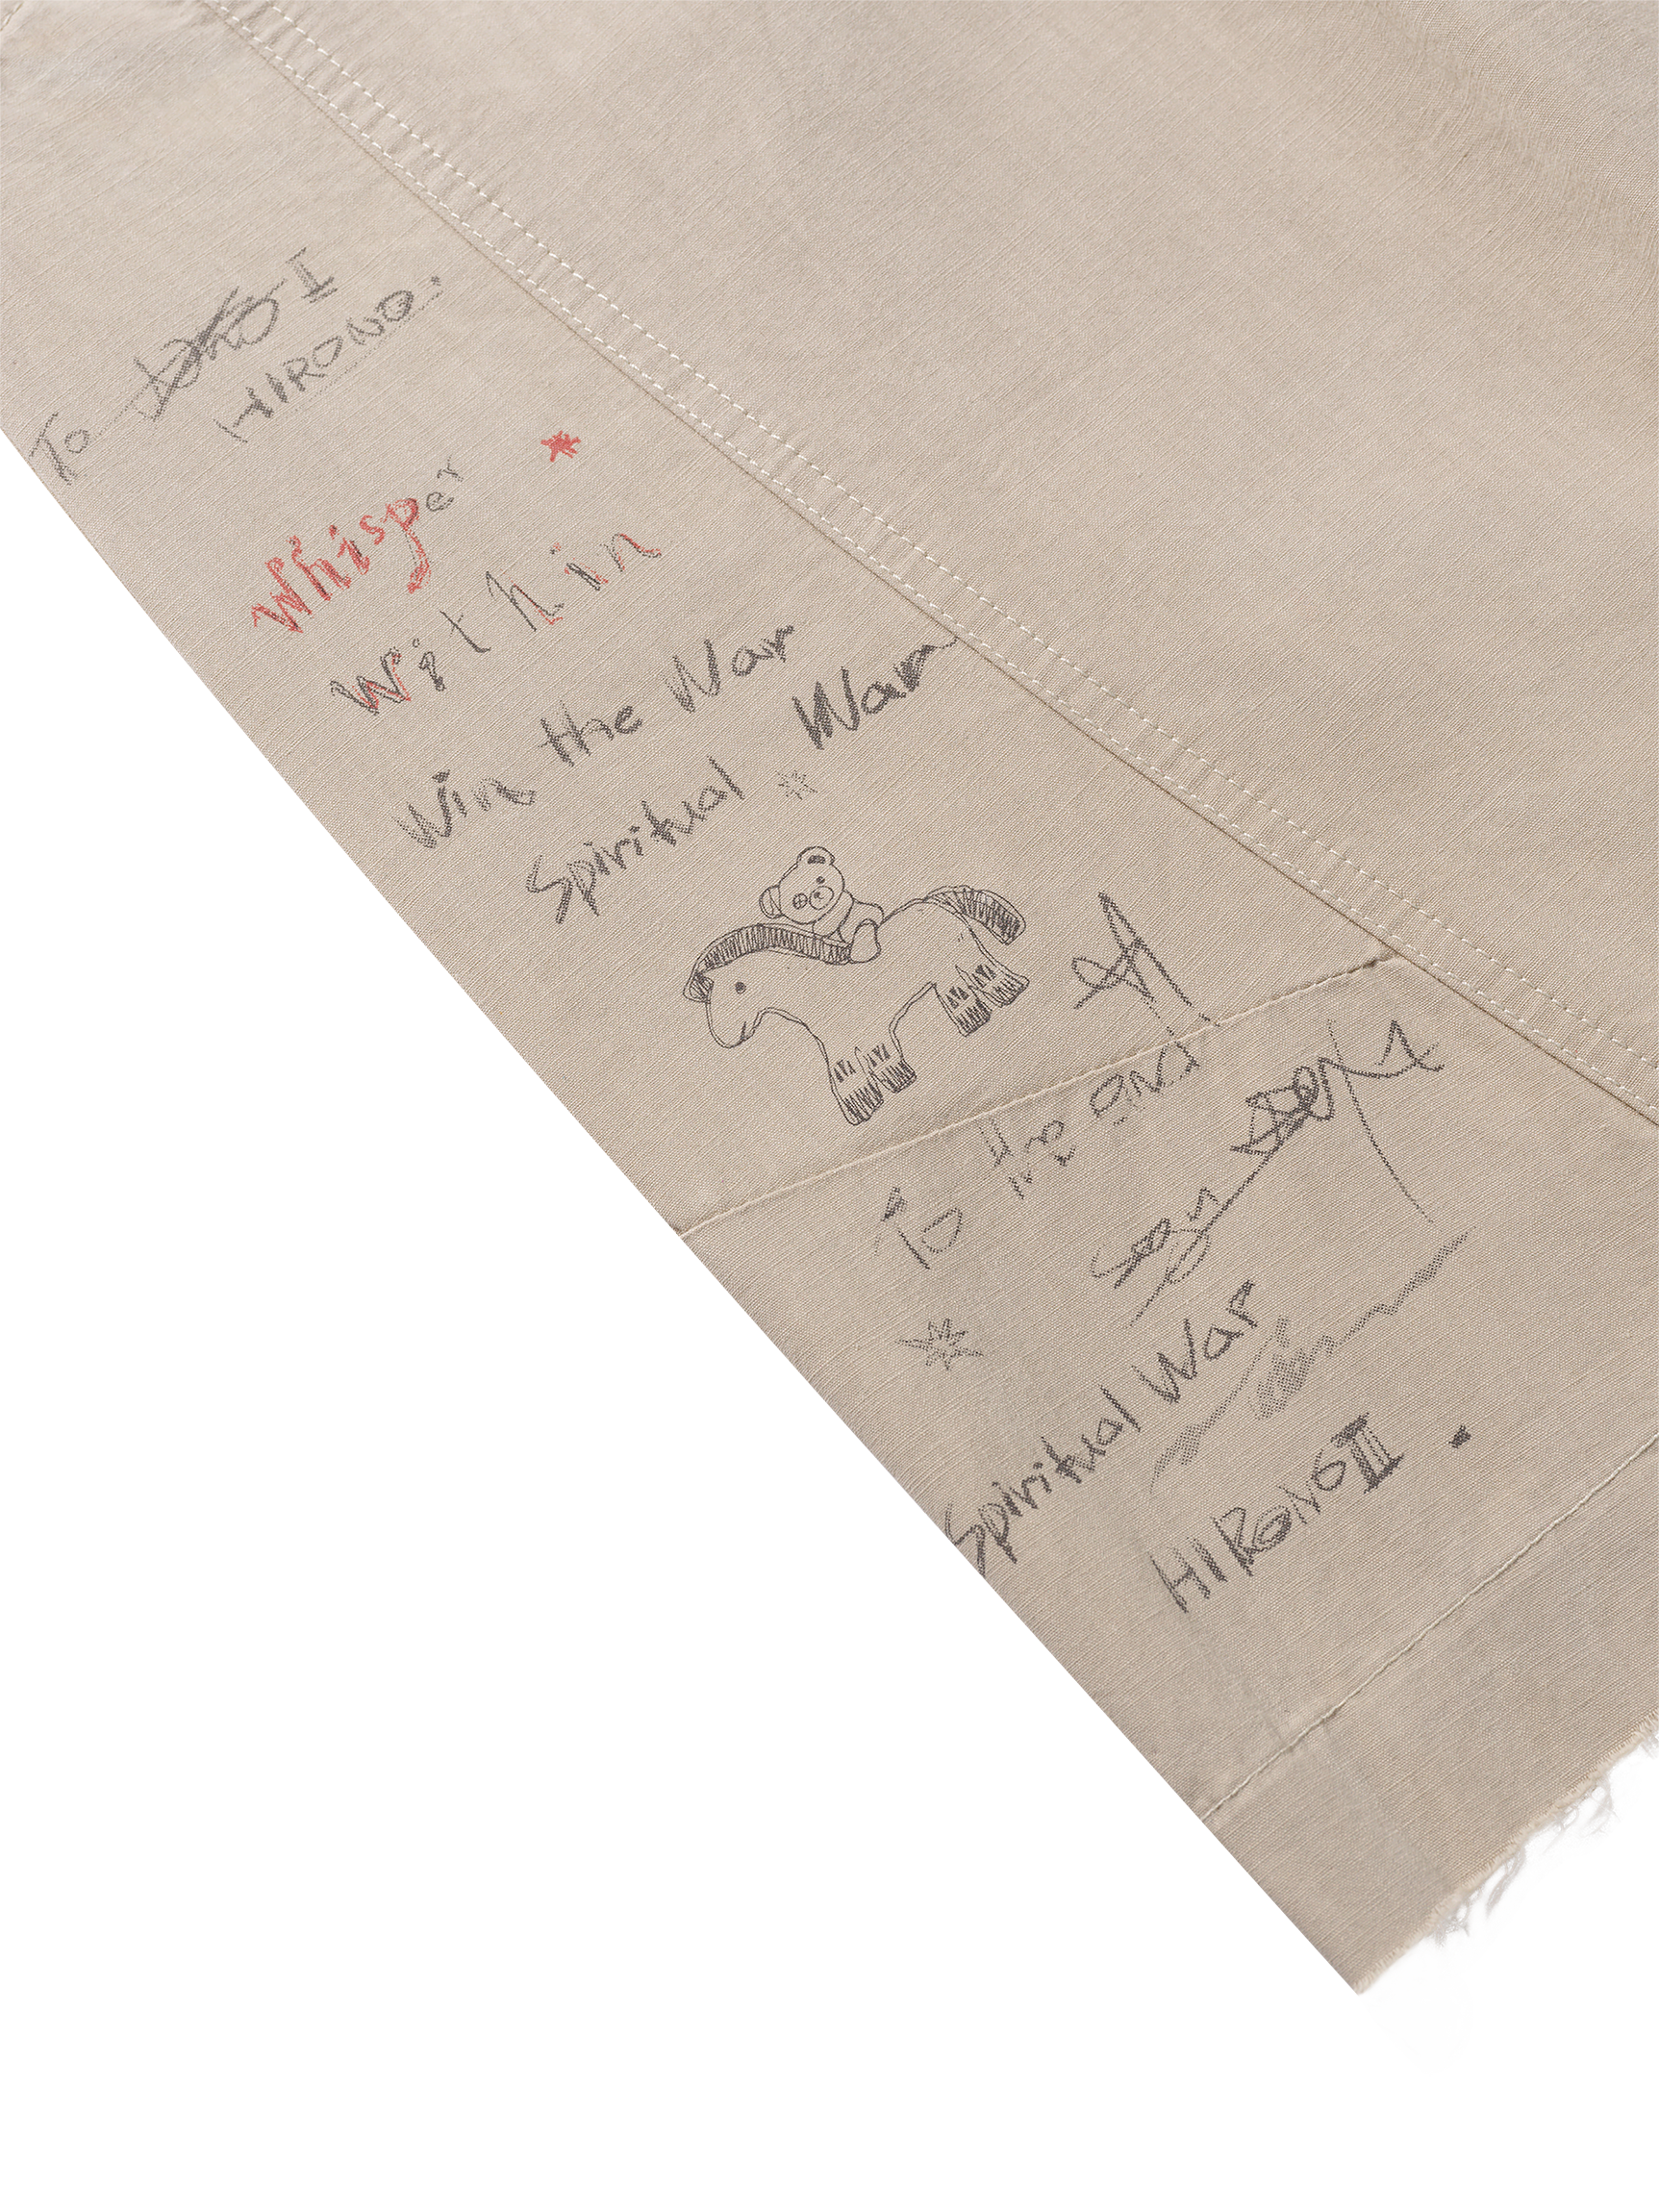 To II
HIRONO.
Whisper
Within
Win the War
Spiritual Warn
To the end
Spiritual War
HIRONO III